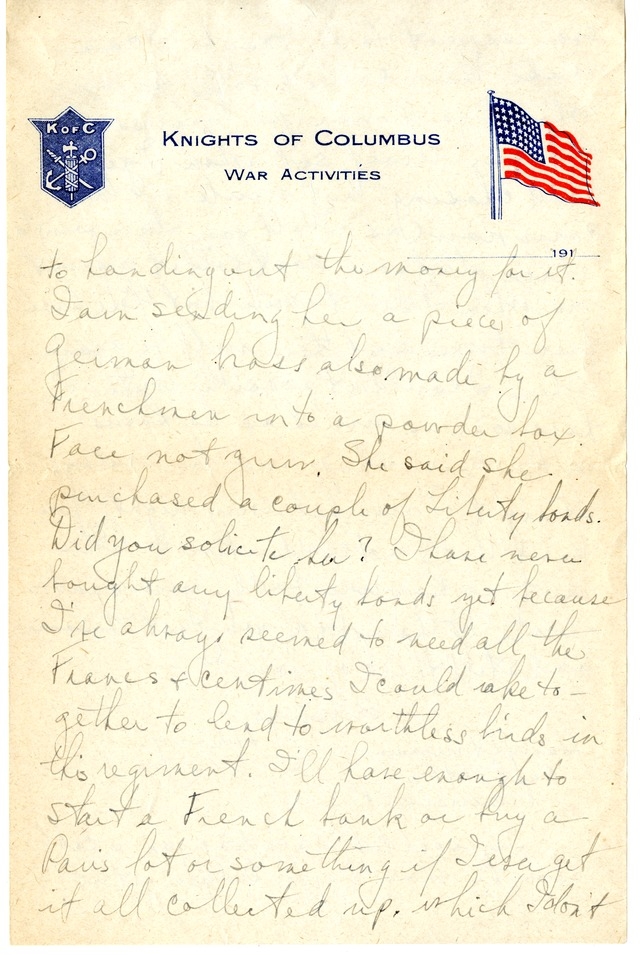 K OF C
KNIGHTS OF COLUMBUS
WAR ACTIVITIES
191
to handing out the money for it.
I am sending her a piece of
German brass also made by a
Frenchmen into a powder box.
Face not gun. She said she
purchased a couple of Liberty bonds.
Did you solicite her? I have never
bought any liberty bonds yet because
I've always seemed to need all the
Francs & centimes I could rake to-
gether to lend to worthless birds in
this regiment. I'll have enough to
start a French bank or buy a
Paris lot or something if I ever get
it all collected up. which I don't